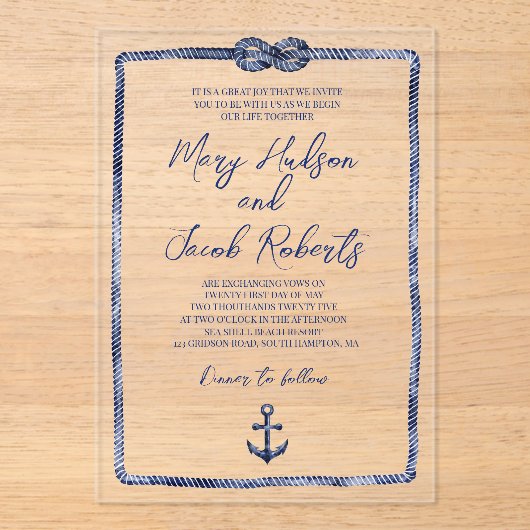 IT IS A GREAT JOY THAT WE INVITE
YOU TO BE WITH US AS WE BEGIN
OUR LIFE TOGETHER
Mary Hudson
and
Jacob Roberts
ARE EXCHANGING VOWS ON
TWENTY FIRST DAY OF MAY
TWO THOUTHANDS TWENTY FIVE
AT TWO O'CLOCK IN THE AFTERNOON
SEA SHELL BEACH RESORT
123 GRIDSON ROAD, SOUTH HAMPTON, MA
Dinner to follow